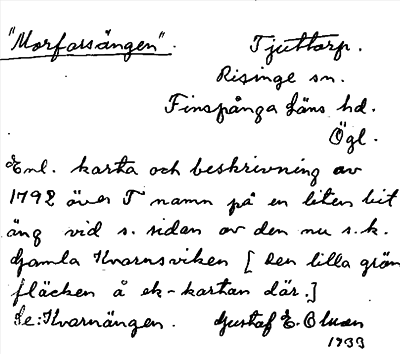 "Morforsängen".
Tjuttorp.
Risinge sn.
Finspånga läns hd.
Ögl.
Enl. karta och beskrivning av
1792 över T namn på en liten bit
äng vid s. sidan av den nu s.k.
Gamla Kvarnsviken [Den lilla grön
fläcken å ek-kartan där.]
Se: Kvarnängen. Gustaf E.
1933